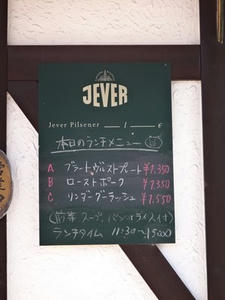 JEVER
Jever Pilsener 1 €
本日のランチメニュー
A ブラートヴルストプレート ¥1,350
B ローストポーク ¥1,350
C リンダーグーラッシュ ¥1,550
(前菜 スープ、パン又はライス付)
ランチタイム 11:30〜15:00